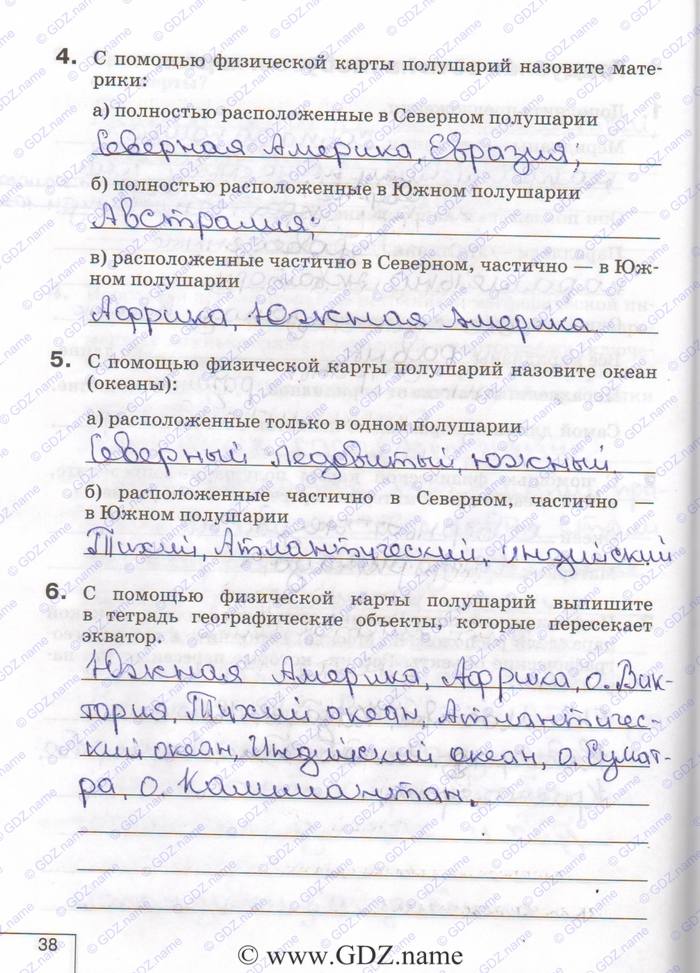 4. С помощью физической карты полушарий назовите мате-
рики:
а) полностью расположенные в Северном полушарии
Северная Америка, Евразия;
б) полностью расположенные в Южном полушарии
Австралия;
в) расположенные частично в Северном, частично — в Юж-
ном полушарии
Африка, Южная Америка.
5. С помощью физической карты полушарий назовите океан
(океаны):
а) расположенные только в одном полушарии
Северный Ледовитый, Южный.
б) расположенные частично в Северном, частично —
в Южном полушарии
Тихий, Атлантический, Индийский
6. С помощью физической карты полушарий выпишите
в тетрадь географические объекты, которые пересекает
экватор.
Южная Америка, Африка, о. Вик-
тория, Тихий океан, Атлантичес-
кий океан, Индийский океан, о. Сумат-
ра, о. Калимантан.
38
© www.GDZ.name